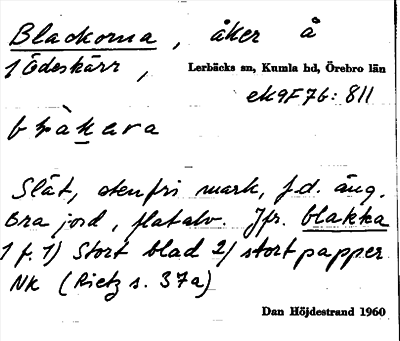 Blackorna, åker å
1 Ödeskärr,
Lerbäcks sn, Kumla hd, Örebro län
ek9F7b: 811
Slät, stenfri mark, f.d. äng.
Bra jord, flatalv. Jfr. blakka
1 f. 1) Stort blad 2) stort papper
NK (Rietz s. 37a)
Dan Höjdestrand 1960